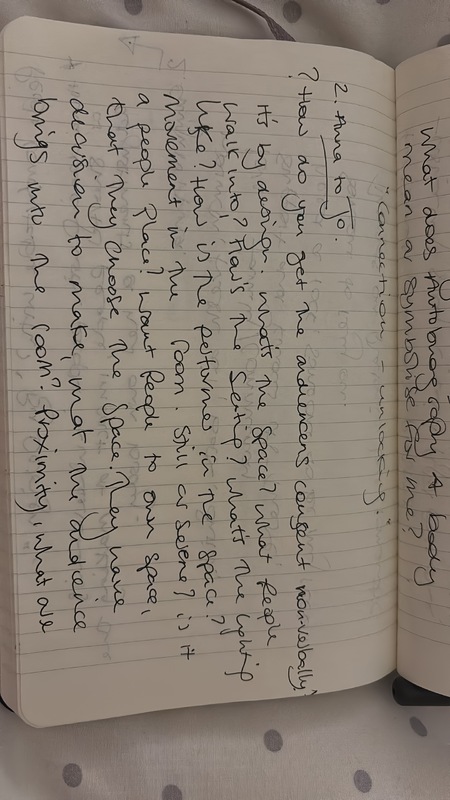 What does Autobiography & body
mean or symbolise for me?
"Connection - unlocking."
2. Anna to Jo.
? How do you get the audiences consent nonverbally?
It's by design. What's the space? What people
walk into? How's the seating? What's the lighting
like? How is the performer in the space?
Movement in the room. Still or serene? is it
a people place? Want people to own space,
that they choose the space. They have
decision to make, what the audience
brings into the room? Proximity, what are